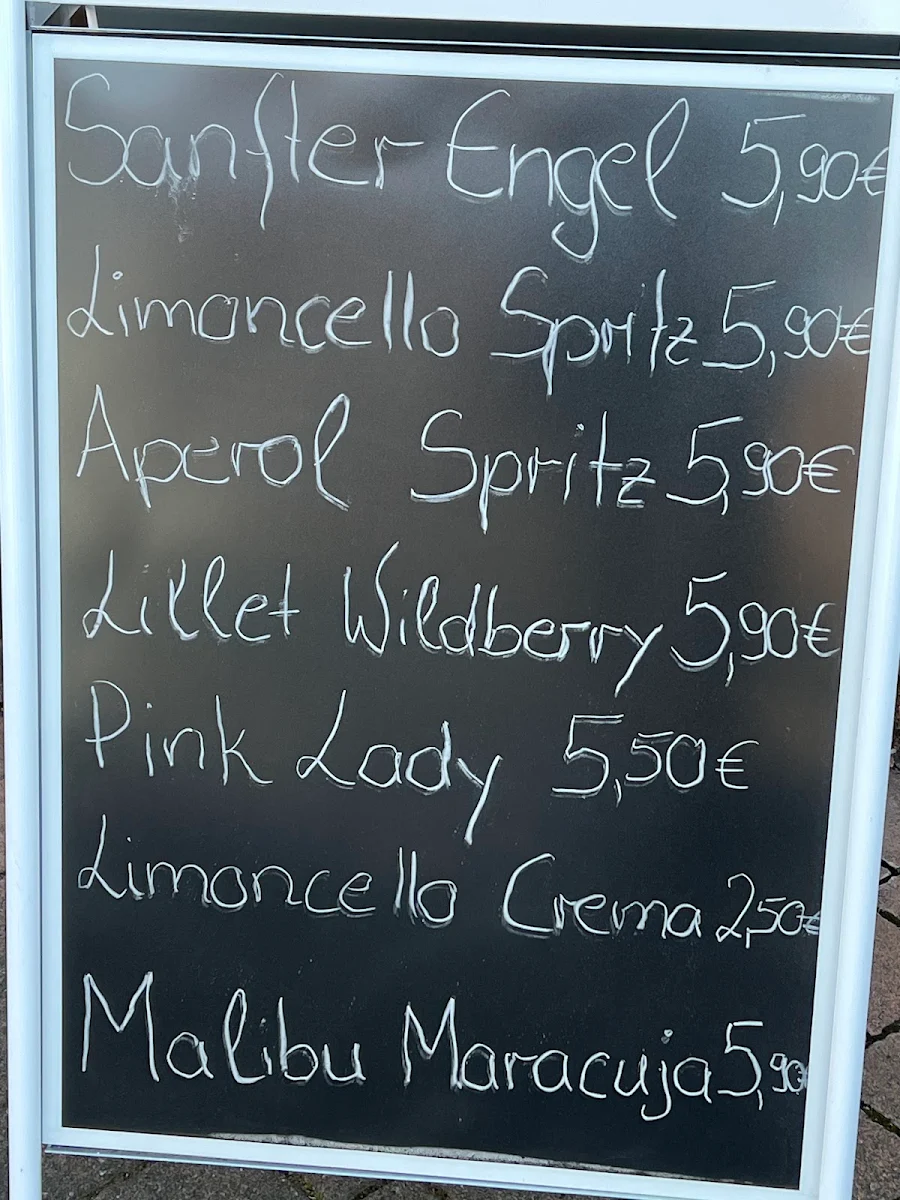 Sanfter Engel 5,90€
Limoncello Spritz 5,90€
Aperol Spritz 5,90€
Lillet Wildberry 5,90€
Pink Lady 5,50€
Limoncello Crema 2,50€
Malibu Maracuja 5,90